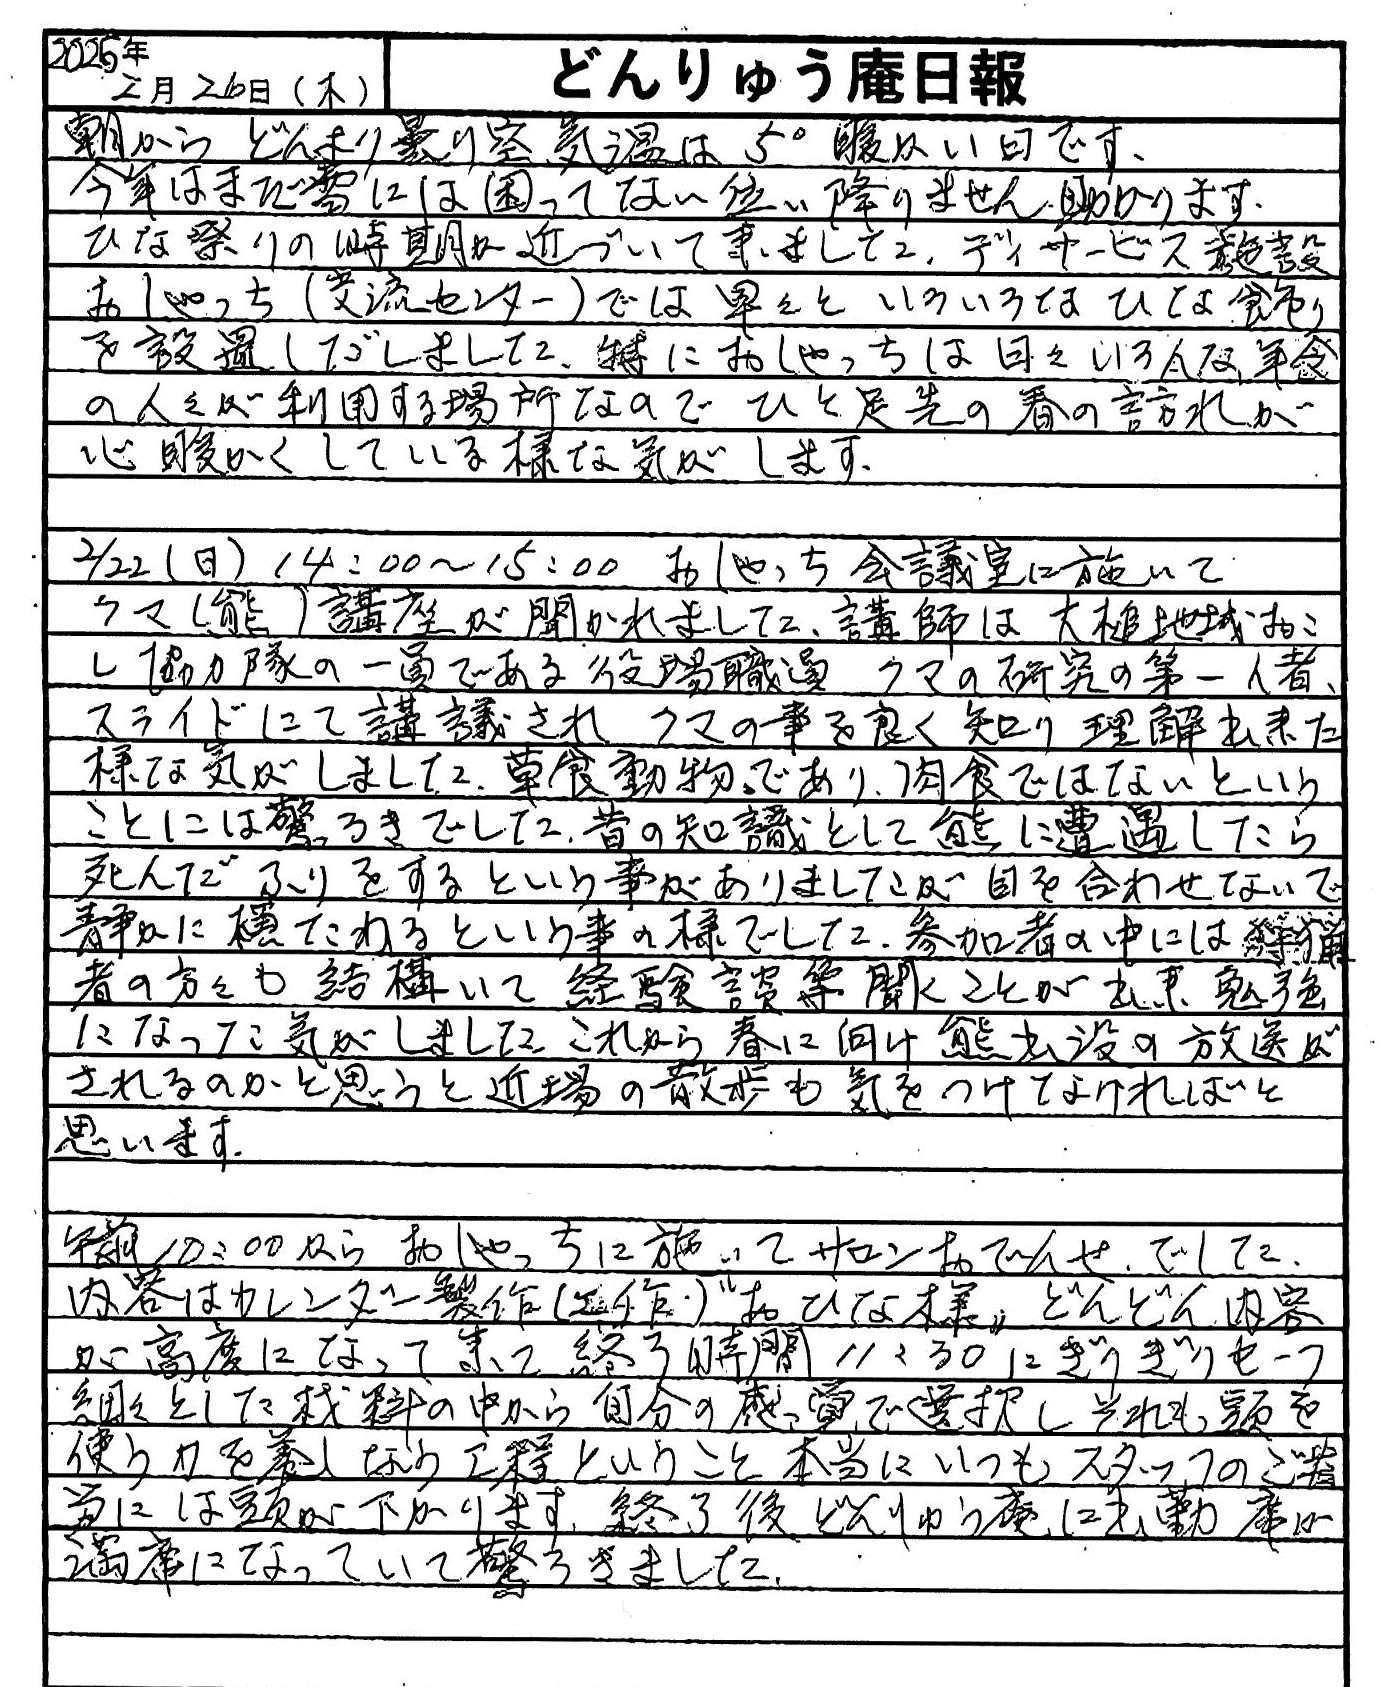 2026年
2月26日(木)
どんりゅう庵日報
朝から どんより曇り空 気温は 5° 暖かい日です、
今年はまだ雪には困ってない位い降りません.助かります.
ひな祭りの時期が近づいて来ました. ディサービス施設
おしゃっち(交流センター)では早々と いろいろなひな飾り
を設置しだしました. 特におしゃっちは日々いろんな年令
の人々が利用する場所なので ひと足先の春の訪れが
心暖かくしている様な気がします.
2/22(日) 14:00〜15:00 おしゃっち会議室に施いて
クマ(熊)講座が開かれました、講師は大槌地域おこ
し協力隊の一員である役場職員 クマの研究の第一人者、
スライドにて講議され クマの事を良く知り理解出来た
様な気がしました. 草食動物であり、肉食ではないという
ことには驚ろきでした. 昔の知識として熊に遭遇したら
死んだふりをするという事がありましたが目を合わせないで
静かに横たわるという事の様でした. 参加者の中には狩猟
者の方々も結構いて 経験談等聞くことが出来 勉強
になった気がしました.これから春に向け熊出没の放送が
されるのかと思うと近場の散歩も気をつけてなければと
思います.
午前10:00から おしゃっちに施いてサロンおでんせ.でした.
内容はカレンダー製作(工作)"おひな様" どんどん内容
が高度になって来て 終了時間 11:30にぎりぎりセーフ
細々とした材料の中から自分の感覚で選択し それも頭を
使う力を要しなう工程ということ 本当にいつもスタッフのご苦
労には頭が下がります. 終了後どんりゅう庵に出勤 席が
満席になっていて驚ろきました.